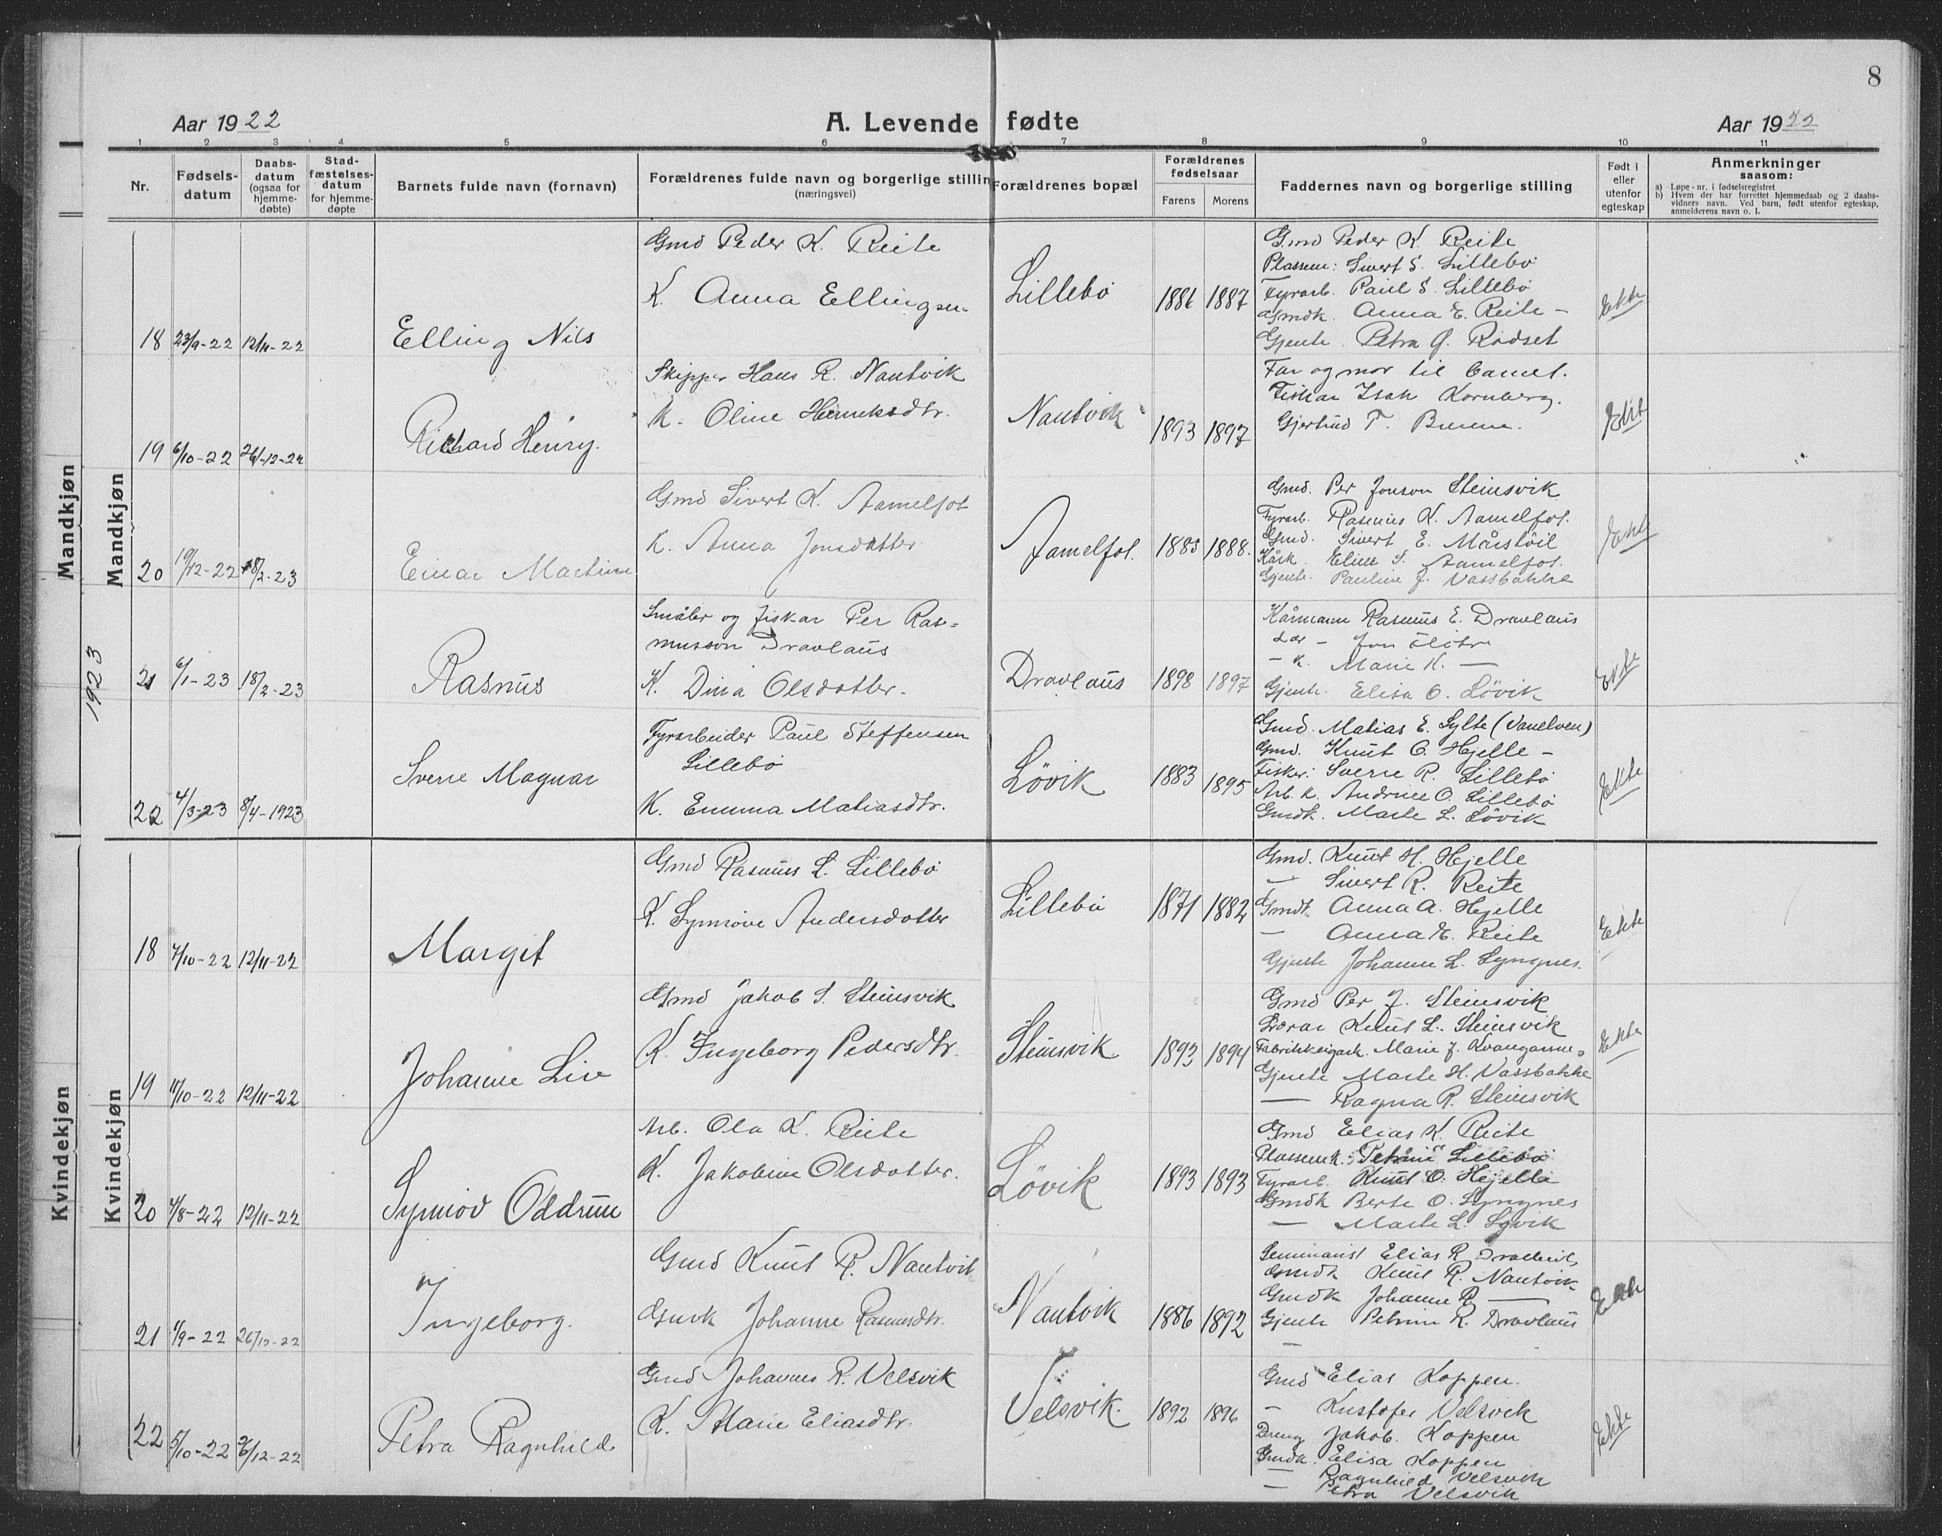 8
Aar 1922
A. Levende fødte
Aar 1922
1 2 3 4 5 6 7 8 9 10 11
Nr.
Fødsels-
datum
Daabs-
datum
(ogsaa for
hjemme-
døbte)
Stad-
fæstelses-
datum
for hjemme-
døpte
Barnets fulde navn (fornavn)
Forældrenes fulde navn og borgerlige stilling
(næringsvei)
Forældrenes bopæl
Forældrenes
fødselsaar
Farens
Morens
Faddernes navn og borgerlig stilling
Født i
eller
utenfor
egteskap
Anmerkninger
saasom:
a) Løpe-nr. i fødselsregistret
b) Hvem der har forrettet hjemmedaab og 2 daabs-
vidners navn. Ved barn, født utenfor egteskap,
anmelderens navn o. l.
Mandkjøn
Mandkjøn
1923
18 23/9-22 12/11-22
Elling Nils
Gmd Peder K. Reite
K. Anna Ellingsen
Lillebø
1886 1887
Gmd Peder K. Reite
Plassem: Sivert S. Lillebø
Fyrarb. Paul S. Lillebø
Gmdk. Anna E. Reite -
Gjente. Petra G. Rødset
Ekte
19 6/10-22 26/12-22
Richard Henry.
Skipper Hans R. Nautvik
K. Oline Henriksdtr.
Nautvik
1893 1897
Far og mor til barnet.
Fiskar Isak Kornberg.
Gjertrud T.
Ekte
20 19/12-22 18/2-23
Einar Martin
Gmd Sivert K. Aamelfot
K. Anna Jonsdotter
Aamelfot.
1885 1888.
Gmd. Per Jonson Steinsvik
Fyrarb. Rasmus K. Aamelfot.
Gmd. Sivert E.
Kårk. Eline S. Aamelfot.
Gjente. Pauline J. Vassbakke
Ekte
21 6/1-23 18/2-23
Rasmus
Småbr og fiskar Per Ras=
musson Dravlaus
K. Dina Olsdotter.
Dravlaus
1898 1897
Kårmann Rasmus E. Dravlaus
- k. Marie K. -
Gjente. Elisa O. Løvik
Ekte
22 4/3-23 8/4-1923
Sverre Magnar
Fyrarbeider Paul Steffensen
Lillebø
K. Emma Matiasdtr.
Løvik
1883 1895
Gmd. Matias E. Sylte (Vanelven)
Gmd. Knut O. Hjelle -
Fisker: Sverre R. Lillebø
Arb. k. Andrine O. Lillebø
Gmdk. Marte L. Løvik
Ekte
Kvindekjøn
Kvindekjøn
18 7/10-22 12/11-22
Margit
Gmd Rasmus L. Lillebø
K. Synnøve Andersdotter
Lillebø
1871 1882
Gmd. Knut H. Hjelle
- Sivert R. Reite
Gmdk Anna A. Hjelle
- Anna E. Reite
Gjente Johanne L. Syngnes.
Ekte
19 11/10-22 12/11-22
Johanne Liv
Gmd Jakob S. Steinsvik
K. Ingeborg Pedersdtr.
Steinsvik
1893 1894
Gmd Per J. Steinsvik
Lærar Knut L. Steinsvik
Marie J.
Gjente Marte H. Vassbakke
- Ragna R. Steinsvik
Ekte
20 4/8-22 12/11-22
Synnøv Oddrun
Arb. Ola K. Reite
K. Jakobine Olsdotter.
Løvik
1893 1893
Gmd Elias K. Reite
Plassemk. Lillebø
Fyrarb. Knut O. Hjelle
Gmdk Berte O. Syngnes
- Marte L. Løvik
21 1/9-22 26/12-22
Ingeborg.
Gmd Knut R. Nautvik
Gmdk Johanne Rasmusdtr.
Nautvik
1886 1892
Seminarist Elias R Dravlaus
Gmdk Knut R. Nautvik
Gmdk Johanne R -
Gjente Petrine R. Dravlaus
-
Ekte
22 5/10-22 26/12-22
Petra Ragnhild
Gmd Johannes R. Velsvik
K. Marie Eliasdtr.
Velsvik.
1892 1896
Gmd Elias Koppen.
- Kristofer Velsvik
Dreng Jakob. Koppen
Gmdk. Elisa Koppen
- Ragnhild Velsvik
- Petra Velsvik
Ekte